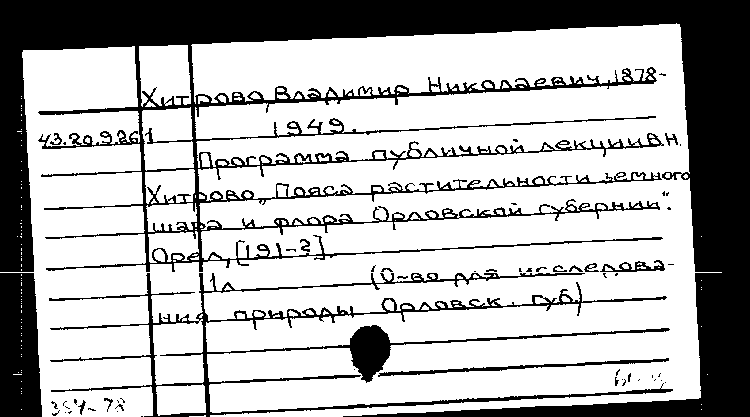 Хитрово, Владимир Николаевич, 1878-
43.20.9.261 1949.
Программа публичной лекции В.Н.
Хитрово „Пояса растительности земного
шара и флора Орловской губернии".
Орел, [191-?].
1л. (О-во для исследова-
ния природы Орловск. губ.)
354-78